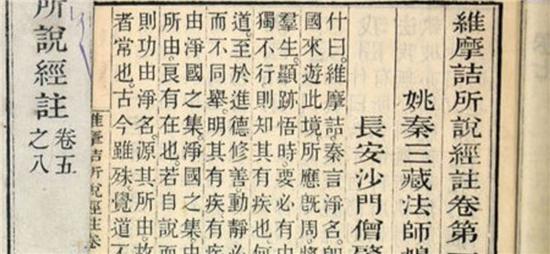 維摩詰所說經註卷第一
姚秦三藏法師鳩
長安沙門僧肇
什曰。維摩詰。秦言淨名。卽
國來遊此境。所應旣周。將
羣生。顯跡悟時。要必有由
獨不行。則知其有疾也。何
道。至於進德修善。動靜必
而不同舉。明其有疾。有疾
由淨國之集。淨國之集
所由。良有在也。若自說而
則功由淨名。源其所由。故
者常也。古今雖殊。覺道不
維摩詰所說經註卷
所說經註
卷五
之八